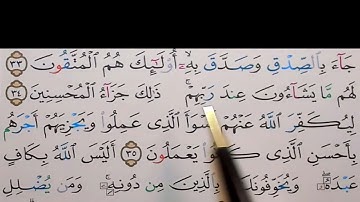 جَآءَ بِٱلصِّدْقِ وَصَدَّقَ بِهِۦٓ أُو۟لَـٰٓئِكَ هُمُ ٱلْمُتَّقُونَ ٣٣
لَهُم مَّا يَشَآءُونَ عِندَ رَبِّهِمْ ۚ ذَٰلِكَ جَزَآءُ ٱلْمُحْسِنِينَ ٣٤
لِيُكَفِّرَ ٱللَّهُ عَنْهُمْ أَسْوَأَ ٱلَّذِى عَمِلُوا۟ وَيَجْزِيَهُمْ أَجْرَهُم
بِأَحْسَنِ ٱلَّذِى كَانُوا۟ يَعْمَلُونَ ٣٥ أَلَيْسَ ٱللَّهُ بِكَافٍ
عَبْدَهُۥ ۖ وَيُخَوِّفُونَكَ بِٱلَّذِينَ مِن دُونِهِۦ ۚ وَمَن يُضْلِلِ